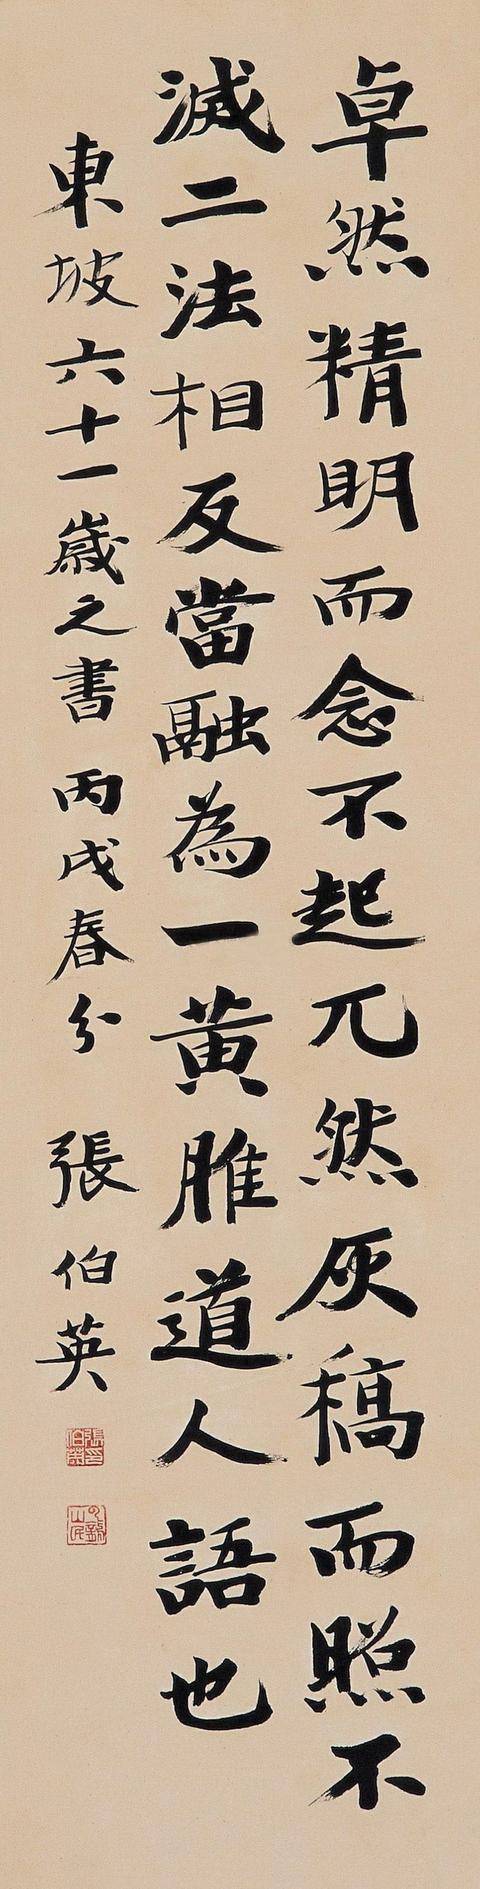 卓然精明而念不起兀然灰稿而照不
滅二法相反當融為一黄脽道人語也
東坡六十一歲之書 丙戌春分 張伯英